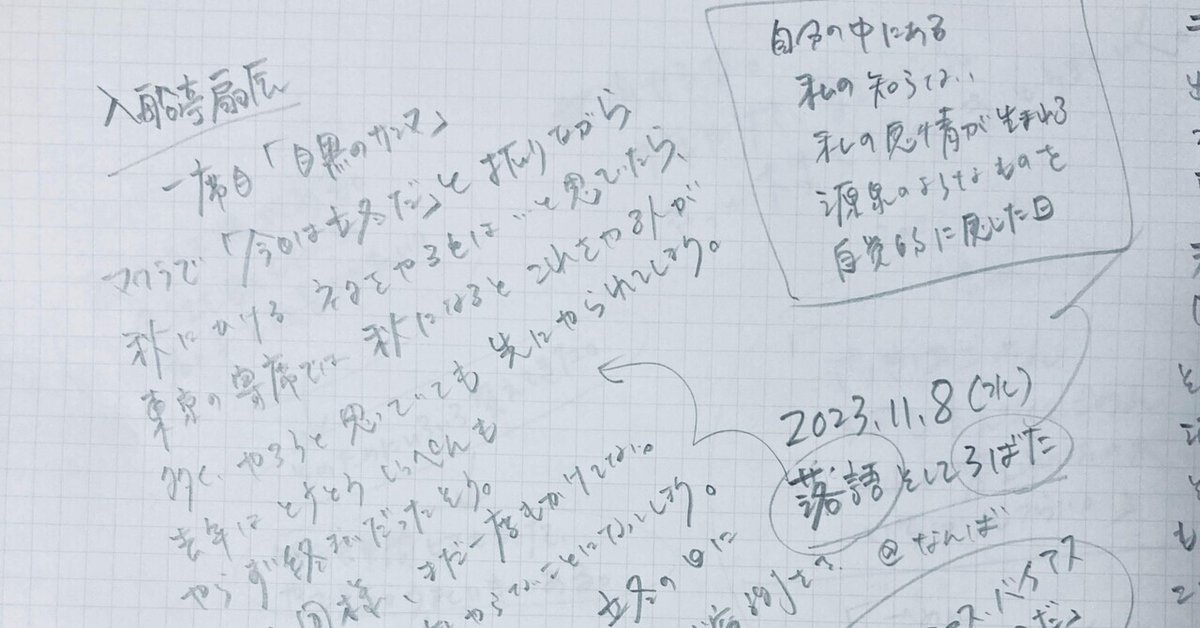 入船亭扇辰
一席目「目黒のサンマ」
マクラで「今日は立冬だ」と振りながら
秋にかける ネタをやるとは…と思っていたら、
東京の寄席では 秋になるとこれをやる人が
多く、やろうと思っていても 先にやられてしまう。
去年は とうとういっぺんも
やらず終いだったそう。
同様、まだ一席もかけてない。
やらないことになってしまう。
立冬の日に
自分の中にある
私の知らない
私の感情が生まれる
源泉のようなものを
自覚的に感じた日
2023.11.8(水)
落語そしてろばた
@なんば
バイアス